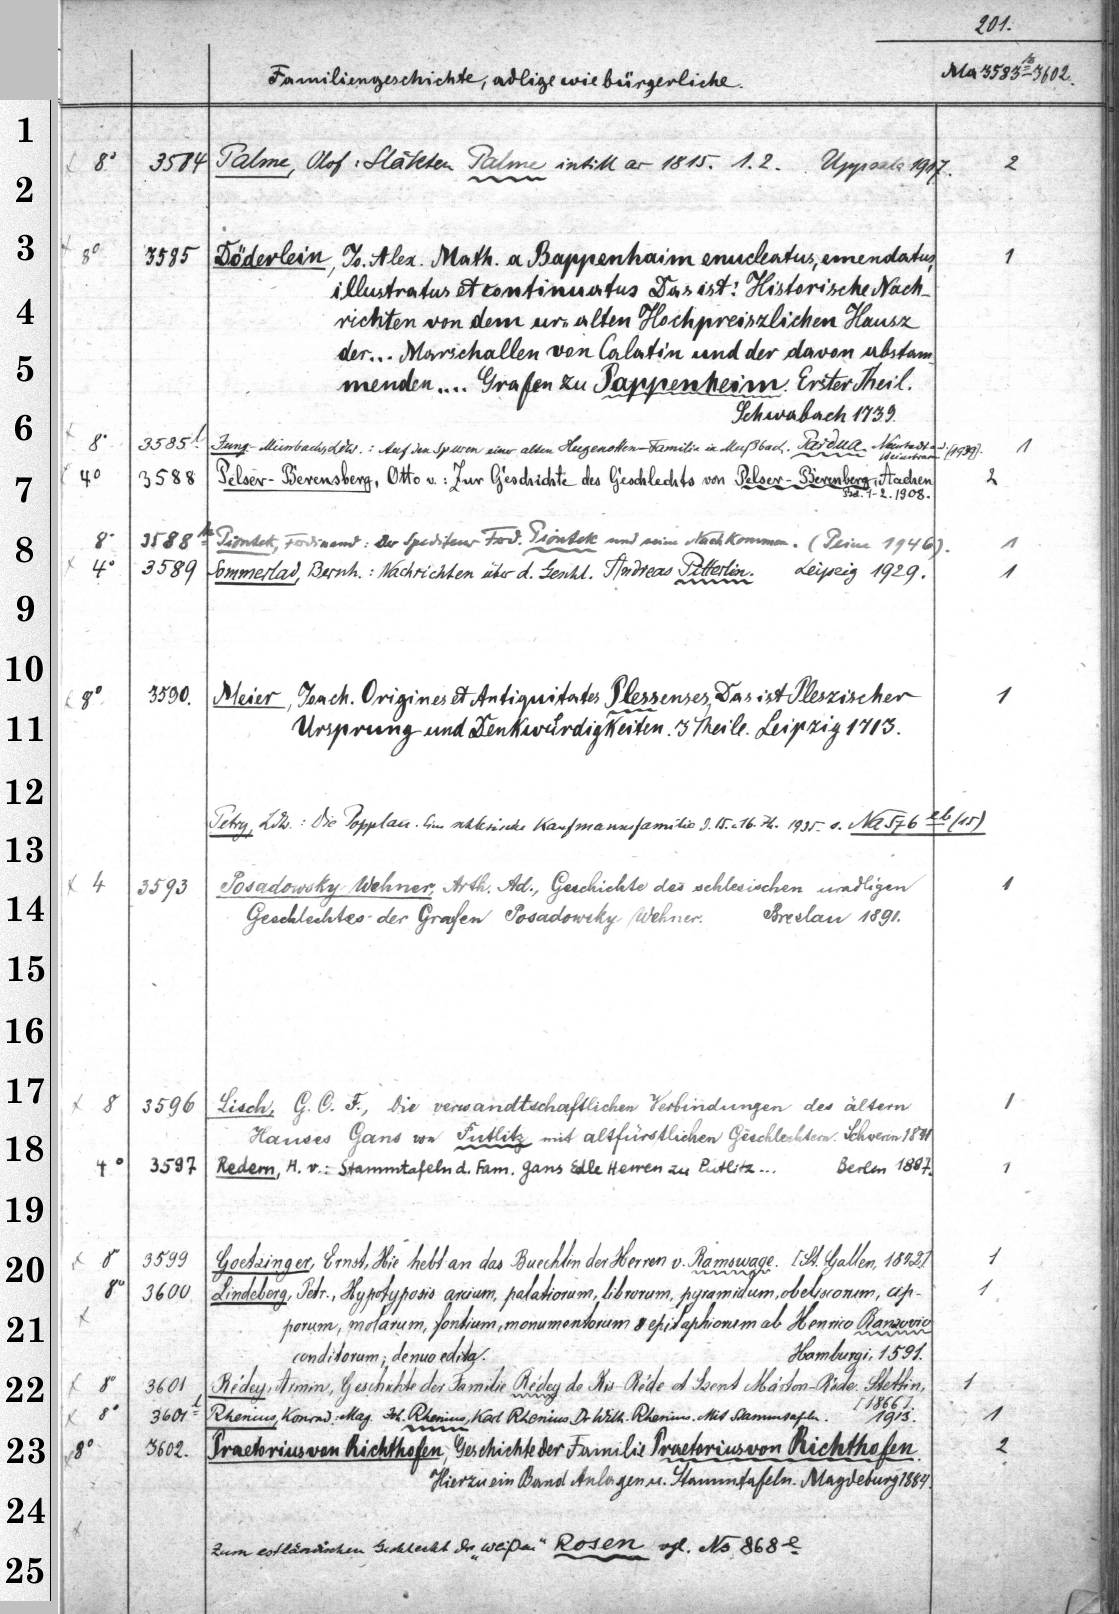 201.
Familiengeschichte, adlige wie bürgerliche. Ma 3583 - 3602.
1
8° 3584 Palme, Olof: Släkten Palme intill ar 1815. 1. 2. Uppsala 1917. 2
2
3
8° 3585 Döderlein, Jo. Alex. Math. a Bappenhaim enucleatus, emendatus, 1
illustratus et continuatus Das ist: Historische Nach-
4
richten von dem ur-alten Hochpreiszlichen Hausz
der... Marschallen von Calatin und der davon abstam-
5
menden.... Grafen zu Pappenheim. Erster Theil.
Schwabach 1739.
6
8° 3585 Jung- : Auf den Spuren einer alten Hugenotten-Familie in Mußbach. Pardua. Neustadt (1939). 1
4° 3588 Pelser-Berensberg, Otto v.: Zur Geschichte des Geschlechts von Pelser-Berenberg, Aachen 2
7
Bd. 1-2. 1908.
8
8° 3588 Piontek, Ferdinand: Der Spediteur Ferd. Piontek und seine Nachkommen. (Peine 1946). 1
4° 3589 Sommerlad, Bernh.: Nachrichten über d. Geschl. Andreas Pitterlin. Leipzig 1929. 1
9
10
8° 3590. Meier, Joach. Origines et Antiquitates Plessenses, Das ist Pleszischer 1
11
Ursprung und Denkwürdigkeiten. 3 Theile. Leipzig 1713.
12
Petry, Ldw.: Die Popplau. Eine schlesische Kaufmannsfamilie d. 15. u. 16. Jh. 1935. s. Na 576 eb (15)
13
4 3593 Posadowsky-Wehner, Arth. Ad., Geschichte des schlesischen uradligen 1
14
Geschlechtes der Grafen Posadowsky Wehner. Breslau 1891.
15
16
17
8 3596 Lisch, G. C. F., Die verwandtschaftlichen Verbindungen des ältern 1
18
Hauses Gans von Putlitz mit altfürstlichen Geschlechtern. Schwerin 1841
4° 3597 Redern, H. v.: Stammtafeln d. Fam. Gans Edle Herren zu Putlitz... Berlin 1887. 1
19
20
8° 3599 Goetzinger, Ernst, Hie hebt an das Buechlin der Herren v. Ramswage. [St. Gallen, 1892] 1
8° 3600 Lindeberg, Petr., Hypotyposis arcium, palatiorum, librorum, pyramidum, obeliscorum, cip- 1
21
porum, molarum, fontium, monumentorum & epitaphiorum ab Henrico Ranzovio
conditorum; denuo edita. Hamburgi, 1591.
22
8° 3601 Rédey, Armin, Geschichte der Familie Rédey de Kis-Réde et Szent Márton-Réde. Stettin, 1
[1866].
8° 3601 Rhenius, Konrad: Mag. Joh. Rhenius, Karl Rhenius, Dr Wilh. Rhenius. Mit Stammtafeln. 1913. 1
23
8° 3602. Praetorius von Richthofen, Geschichte der Familie Praetorius von Richthofen. 2
Hierzu ein Band Anlagen u. Stammtafeln. Magdeburg 1884.
24
Zum estländischen Geschlecht der "weißen" Rosen vgl. No 868 e
25